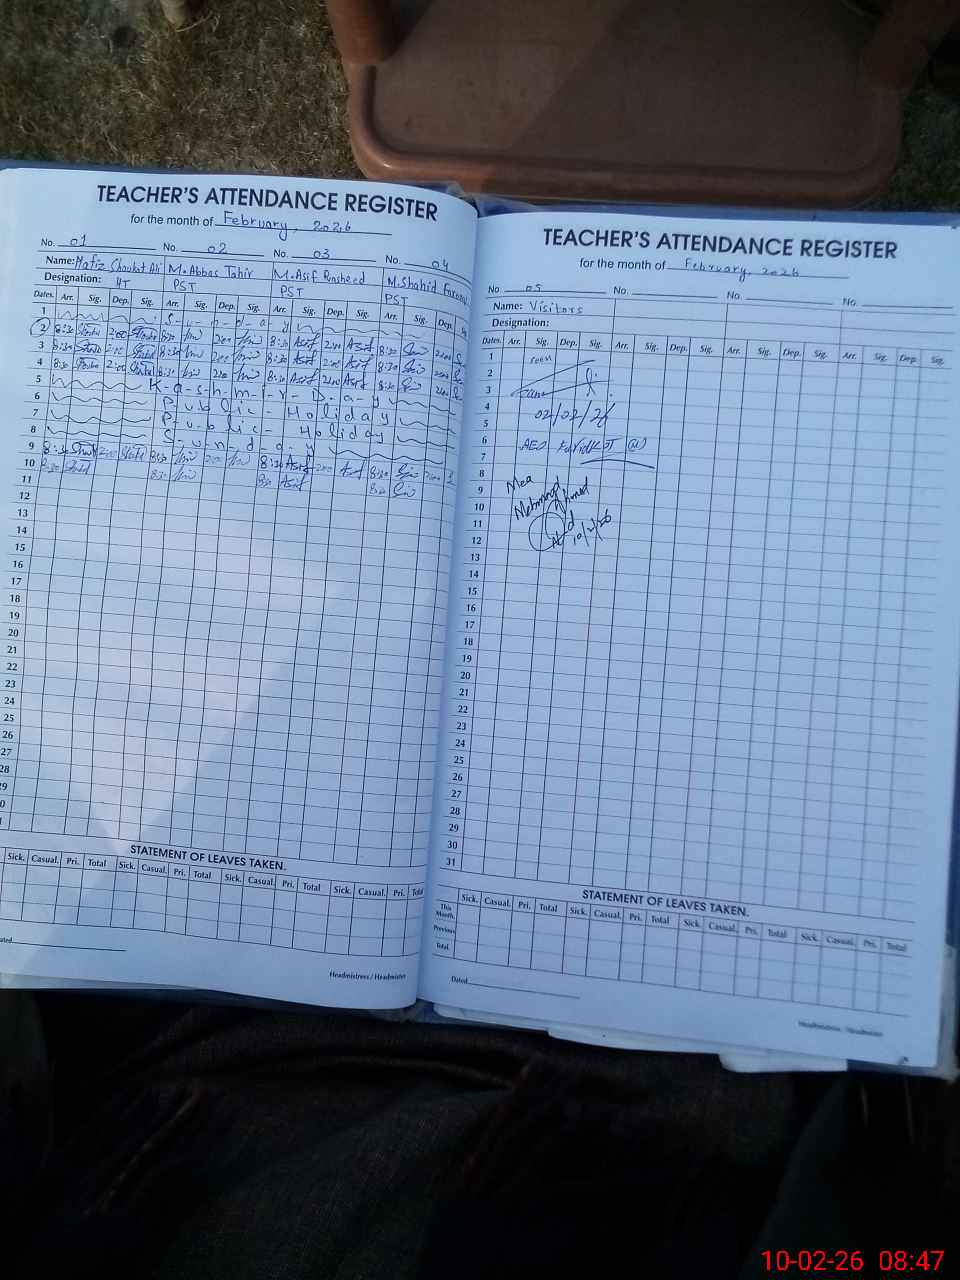 TEACHER'S ATTENDANCE REGISTER
for the month of February, 2026
No. 01 No. 02 No. 03 No. 04
Name: Hafiz Shaukat Ali M. Abbas Tahir M. Asif Rasheed M. Shahid Farooq
Designation: HT PST PST PST
Dates. Arr. Sig. Dep. Sig. Arr. Sig. Dep. Sig. Arr. Sig. Dep. Sig. Arr. Sig. Dep. Sig.
1 S-u-n-d-a-y
2 8:30 2:00 8:30 2:00 8:30 Asif 2:00 Asif 8:30 2:00
3 8:30 2:00 8:30 2:00 8:30 Asif 2:00 Asif 8:30 2:00
4 8:30 2:00 8:30 2:00 8:30 Asif 2:00 Asif 8:30 2:00
5 K-a-s-h-m-i-r- D-a-y
6 P-u-b-l-i-c- Holiday
7 P-u-b-l-i-c- Holiday
8 S-u-n-d-a-y
9 8:30 2:00 8:30 2:00 8:30 Asif 2:00 Asif 8:30 2:00
10 8:30 8:30 8:30 Asif 8:30
11
12
13
14
15
16
17
18
19
20
21
22
23
24
25
26
27
28
29
0
STATEMENT OF LEAVES TAKEN.
Sick. Casual. Pri. Total Sick. Casual. Pri. Total Sick. Casual. Pri. Total Sick. Casual. Pri. Total
ated
Headmistress / Headmister
TEACHER'S ATTENDANCE REGISTER
for the month of February, 2026
No. 05 No. No. No.
Name: Visitors
Designation:
Dates. Arr. Sig. Dep. Sig. Arr. Sig. Dep. Sig. Arr. Sig. Dep. Sig. Arr. Sig. Dep. Sig.
1
2 seen
3
4
5 02/02/26
6
7 AEO
8
9 Mea
10 Mehmood Ahmed
11
12 10/2/26
13
14
15
16
17
18
19
20
21
22
23
24
25
26
27
28
29
30
31
STATEMENT OF LEAVES TAKEN.
Sick. Casual. Pri. Total Sick. Casual. Pri. Total Sick. Casual. Pri. Total Sick. Casual. Pri. Total
This Month.
Previous
Total.
Dated
Headmistress / Headmister
10-02-26 08:47